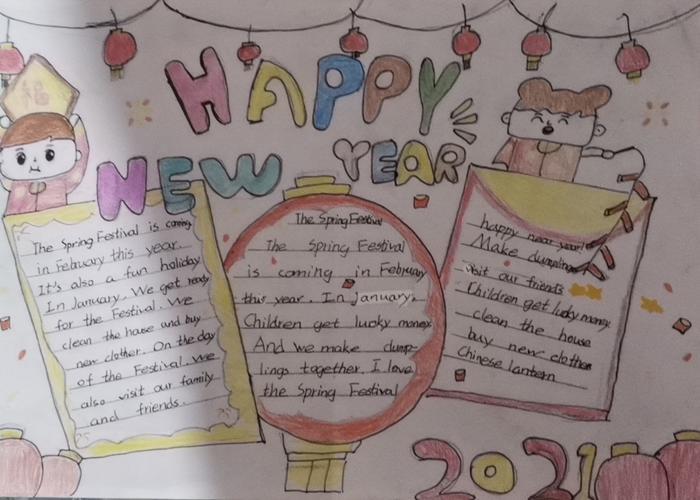 HAPPY
NEW YEAR
福
The Spring Festival is coming
in February this year.
It's also a fun holiday
In January. We get ready
for the Festival. We
clean the house and buy
new clother. On the day
of the Festival. We
also visit our family
and friends.
The Spring Festival
The Spring Festival
is coming in February
this year. In January.
Children get lucky money.
And we make dump-
lings together. I love
the Spring Festival
happy near year!
Make dumplings
visit our friends
Children get lucky money
clean the house
buy new clother
Chinese lantern
2021